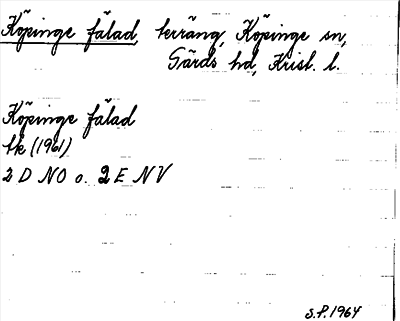 Köpinge fälad, terräng, Köpinge sn,
Gärds hd, Krist. l.
Köpinge fälad
tk (1961)
2 D NO o. 2 E NV
S.P. 1964